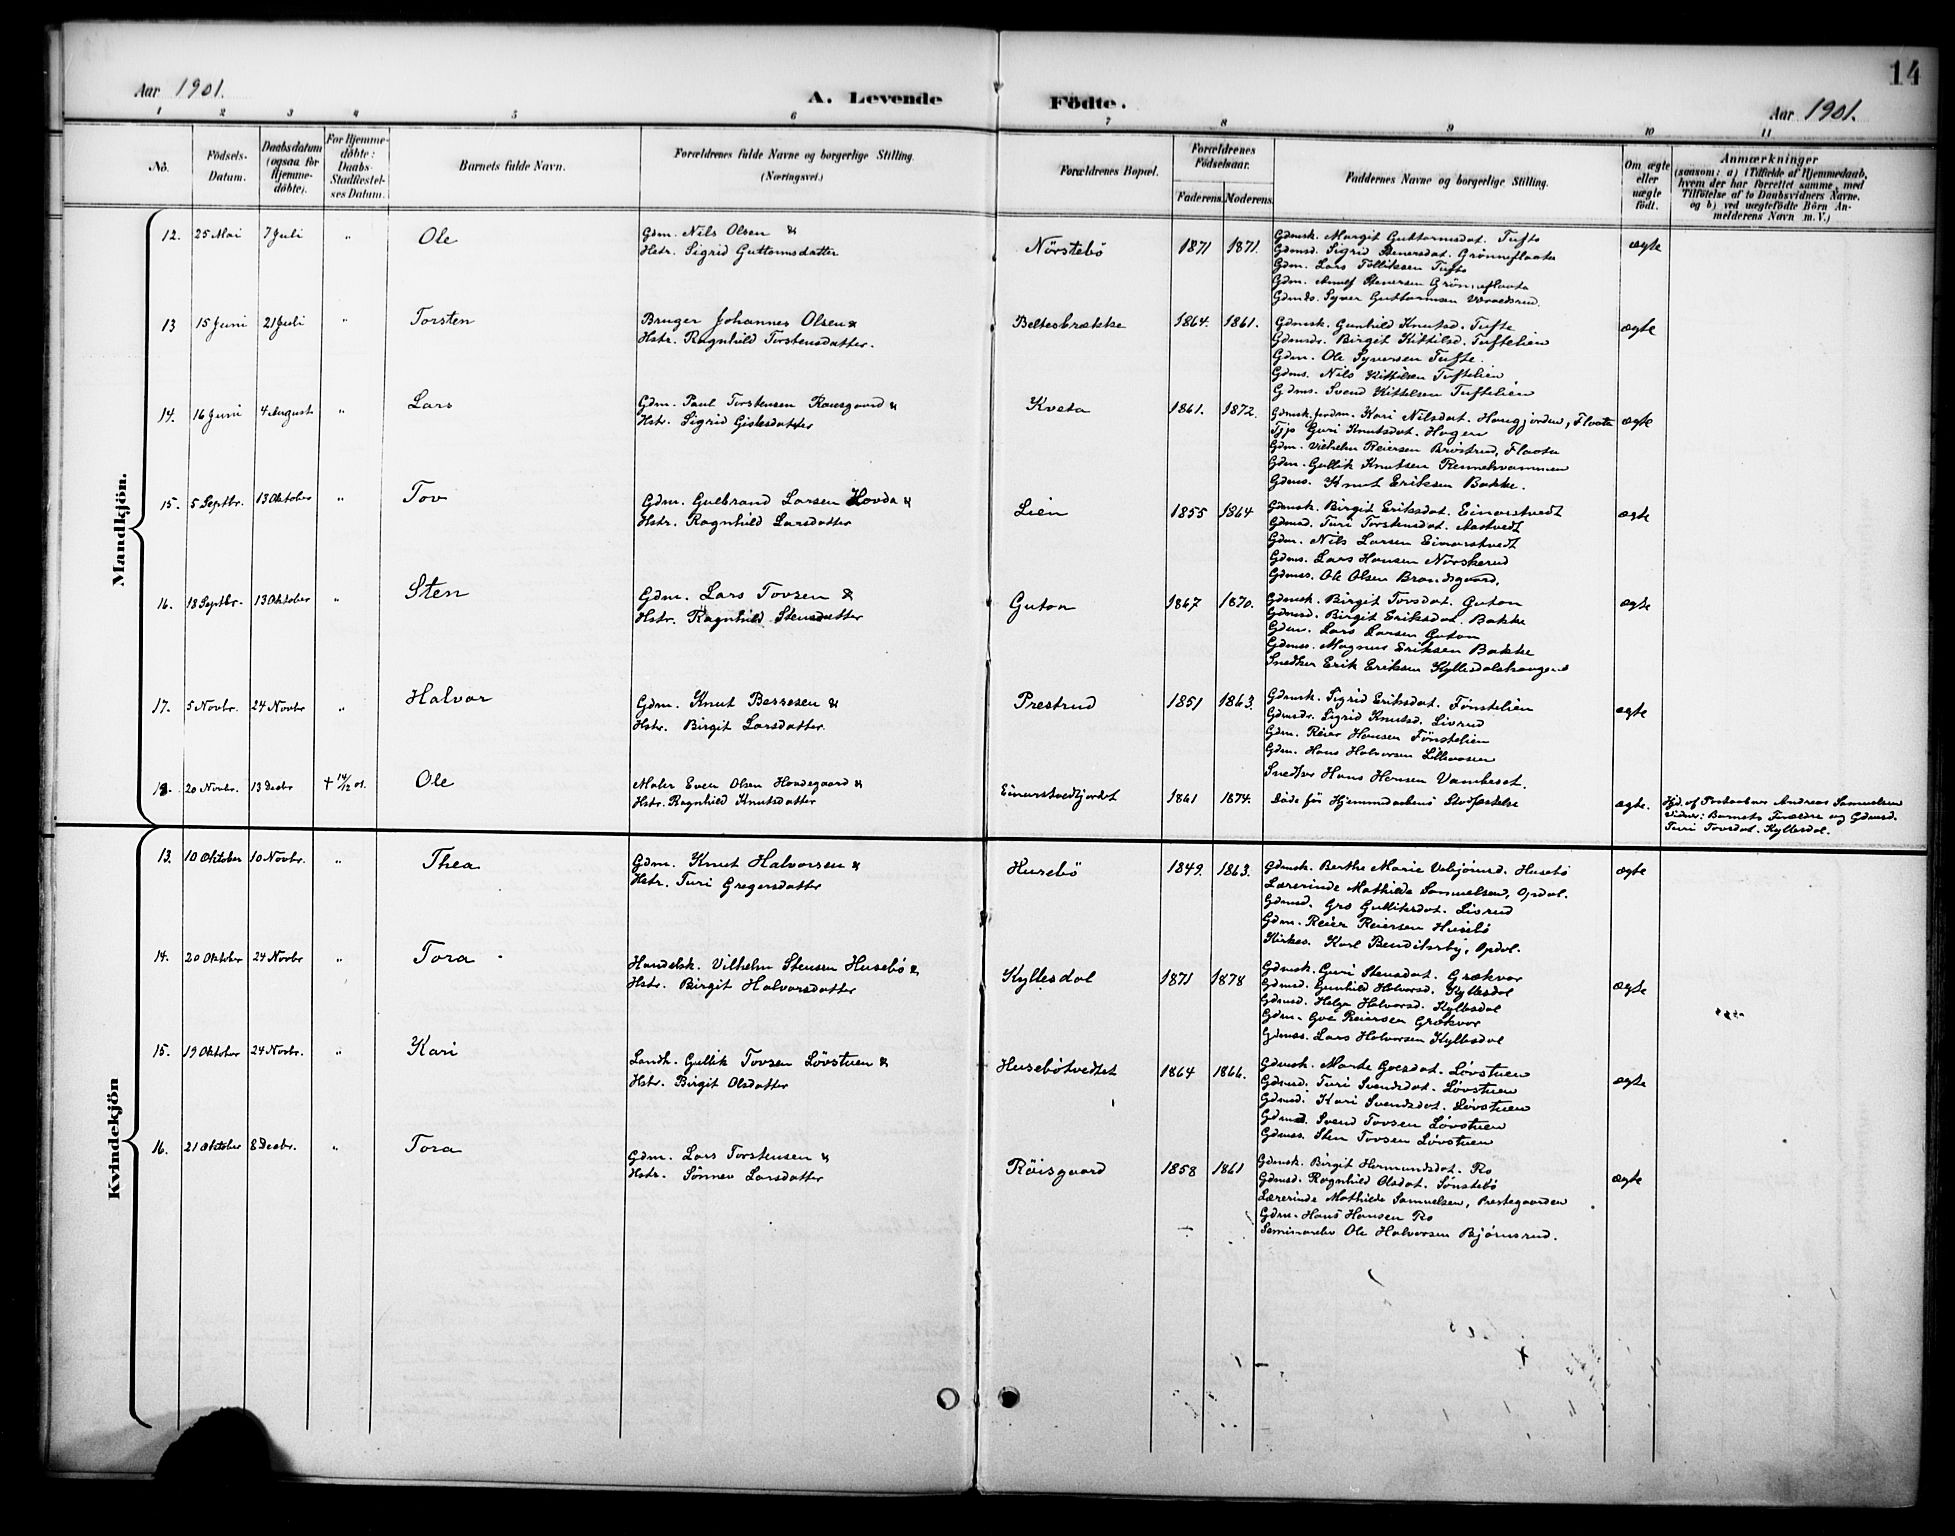 14
Aar 1901.
A. Levende Födte.
Aar 1901.
1 2 3 4 5 6 7 8 9 10 11
No.
Födsels-Datum.
Daabsdatum (ogsaa for Hjemme-döbte).
For Hjemme-döbte: Daabs-Stadfæstel-ses Datum.
Barnets fulde Navn.
Forældrenes fulde Navne og borgerlige Stilling. (Næringsvei.)
Forældrenes Bopæl.
Forældrenes Födselsaar.
Faderens. Moderens.
Faddernes Navne og borgerlige Stilling.
Om ægte eller uægte födt.
Anmærkninger
(saasom: a) i Tilfælde af Hjemmedaab,
hvem der har forrettet samme, med
Tilföielse af to Daabsvidners Navne.
og b) ved uægtefödte Börn An-
melderens Navn m. V.)
Mandkjön.
12. 25 Mai 7 Juli " Ole
Gdm. Nils Olsen &
Hstr. Sigrid Guttormsdatter
Nørstebö 1871 1871.
Gdmsk. Margit Guttormsdat. Tufto
Gdmsd. Sigrid Stenersdat. Grønneflaata
Gdm. Lars Tolliksen Tufto
Gdm. Stenersen Grønneflaata
Gdmds. Syver Guttormsen
ægte
13 15 Juni 21 Juli " Torsten
Bruger Johannes Olsen &
Hstr. Ragnhild Torstensdatter.
Beltesbrække 1864. 1861.
Gdmsk. Gunhild Knutsd. Tufte
Gdmsdr. Birgit Kittilsd. Tuftelien
Gdm. Ole Syversen Tufte.
Gdms. Nils Kittilsen Tuftelien
Gdms. Svend Kittelsen Tuftelien
ægte
14. 16 Juni 4 August " Lars
Gdm. Paul Torstensen Raaegaard &
Hstr. Sigrid Gislesdatter
Kveta 1861. 1872.
Gdmsk. Kari Nilsdat. Haugjorden, Flaata
Tjp Guri Knutsdat. Hagen
Gdm. Vilhelm Reiersen Brøstrud, Flaata
Gdm. Gullik Knutsen Rennehvammen
Gdms. Knut Eriksen Bakke.
ægte
15. 5 Septbr. 13 Oktober " Tov
Gdm. Gulbrand Larsen Hovda &
Hstr. Ragnhild Larsdatter
Lien 1855 1864
Gdmsk. Birgit Eriksdat. Einarstvedt
Gdmsd. Turi Torstensdat. Aastvedt
Gdm. Nils Larsen Einarstvedt
Gdms. Lars Hansen Nørskerud
Gdmss. Ole Olsen Brandsgaard.
ægte
16. 18 Septbr. 13 Oktober " Sten
Gdm. Lars Tovsen &
Hstr. Ragnhild Stensdatter
Guton 1867 1870.
Gdmsk. Birgit Tovsdat. Guton
Gdmsd. Birgit Eriksdat. Bakke
Gdm. Lars Larsen Guton
Gdmss. Magnus Eriksen Bakke
Snedker Erik Eriksen Kyllesdalshaugen
ægte
17. 5 Novbr. 24 Novbr " Halvar
Gdm. Knut Bessesen &
Hstr. Birgit Larsdatter.
Prestrud 1851 1863.
Gdmsk. Sigrid Eriksdat. Fönstelien
Gdmsdr. Sigrid Knutsd. Livrud
Gdm. Reier Hansen Fönstelien
Gdm. Hans Halvorsen Lillevasen
Snedker Hans Hansen Vambeset.
ægte
18. 20 Novbr. 13 Decbr + 14/12 01. Ole
Maler Even Olsen Hovdegaard &
Hstr. Ragnhild Knutsdatter
Einarstvedtjordet 1861 1874.
Døde før Hjemmedaabens Stadfæstelse
ægte.
Hjd. af Postaabner Andreas Samuelsen
Vidner: Barnets Forældre og Gdmsd.
Turi Tovsdat. Kyllesdal.
Kvindekjön
13. 10 Oktober 10 Novbr. " Thea
Gdm. Knut Halvorsen &
Hstr. Turi Gregersdatter
Husebö 1849. 1863.
Gdmsk. Berthe Marie Husebö
Lærerinde Mathilde Samuelsen, Opdal.
Gdmsd. Gro Gulliksdat. Livrud
Gdm. Reier Reiersen Husebö
Kirkes. Karl Opdal.
ægte
14. 20 Oktober 24 Novbr " Tora
Handelsk. Vilhelm Stensen Husebö &
Hstr. Birgit Halvorsdatter
Kyllesdal 1871 1878
Gdmsk. Guri Stensdat. Grækvor
Gdmsd. Gunhild Halvorsd. Kyllesdal
Gdmsd. Helga Halvorsd. Kyllesdal
Gdm. Goe Reiersen Grækvor
Gdmss. Lars Halvorsen Kyllesdal
ægte
15. 19 Oktober 24 Novbr. " Kari
Landh. Gullik Tovsen Lövstuen &
Hstr. Birgit Olsdatter
Husebötvedtet 1864 1866.
Gdmsk. Marte Goesdat. Løvstuen
Gdmsd. Turi Svendsdat. Løvstuen
Gdmsd. Kari Svendsdat. Løvstuen
Gdmsd. Svend Tovsen Løvstuen
Gdmss. Sten Tovsen Løvstuen
ægte
16. 21 Oktober 8 Decbr. " Tora
Gdm. Lars Torstensen &
Hstr. Sönnev Larsdatter
Röisgaard 1858 1861
Gdmsk. Birgit Hermundsdat. Ro
Gdmsd. Ragnhild Olsdat. Sönstebö
Lærerinde Mathilde Samuelsen, Prestegaarden
Gdm. Hans Hansen Ro
Seminarelev Ole Halvorsen Bjørnsrud.
ægte